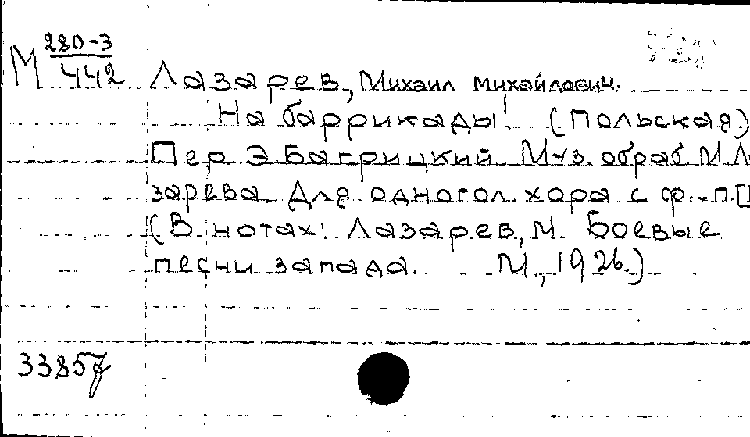 М 280-3
442
Лазарев, Михаил Михайлович.
На баррикады! (Польская)
Пер Э Багрицкий. Муз. обраб М. Ла
зарева. Для одногол. хора с ф.-п.[
(В нотах: Лазарев, М. Боевые
песни запада. М., 1926.)
33857